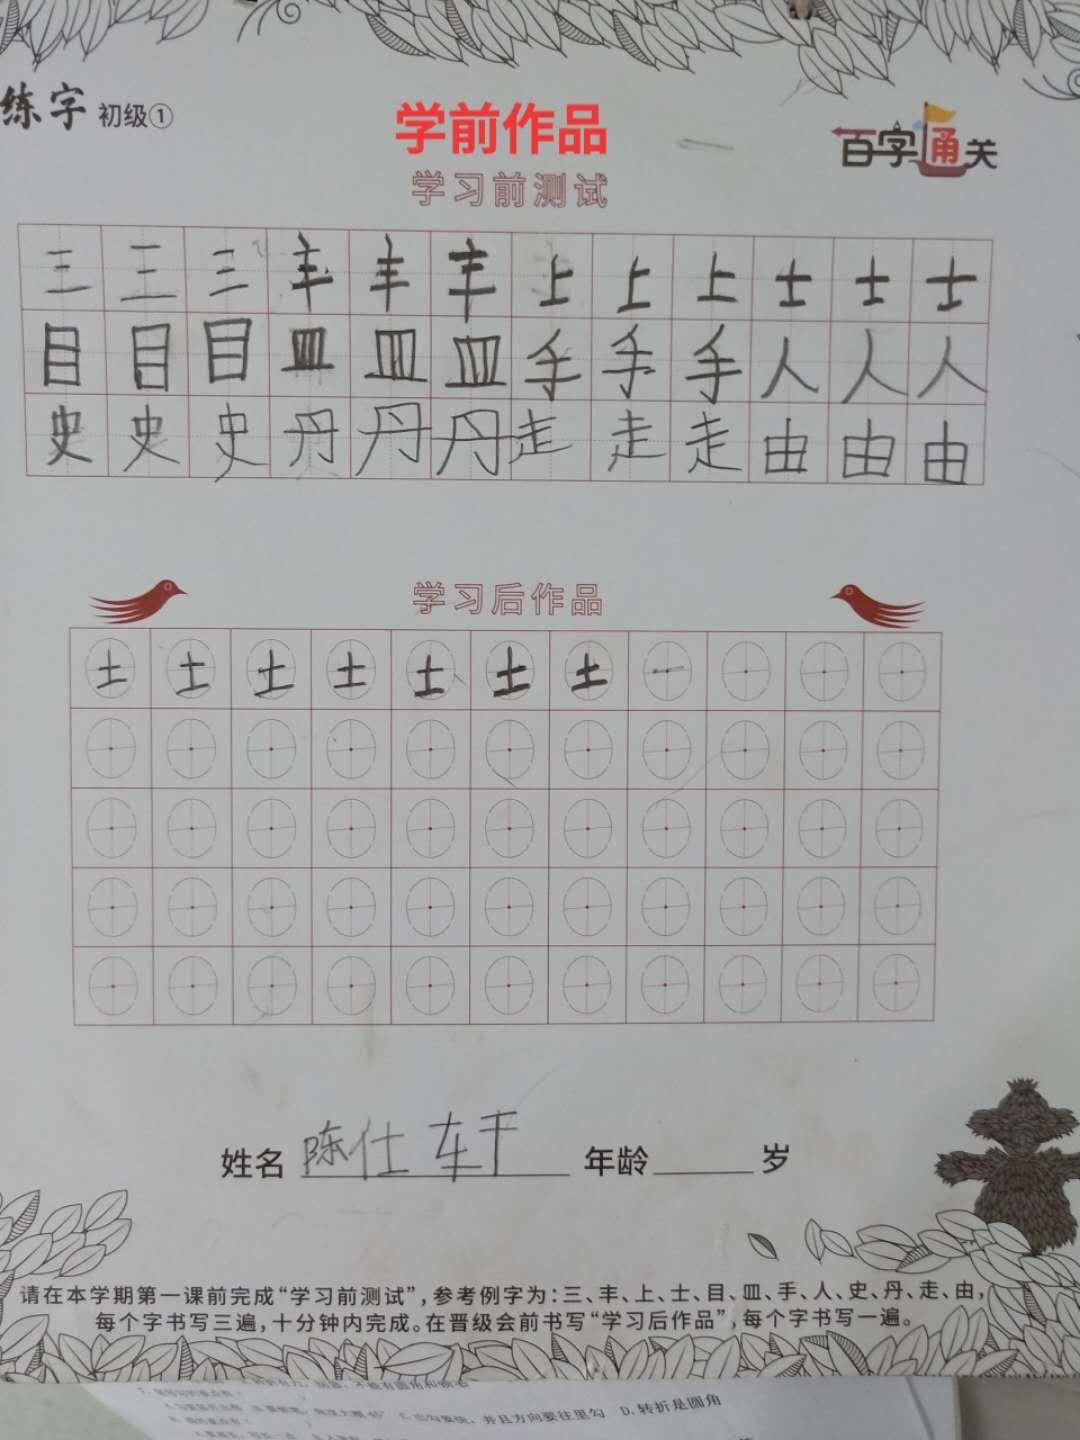 练字 初级①
学前作品
百字通关
学习前测试
三三三丰丰丰上上上士士士
目目目皿皿皿手手手人人人
史史史丹丹丹走走走由由由
学习后作品
土土土土土土土一
姓名 陈仕轩 年龄 岁
请在本学期第一课前完成“学习前测试”,参考例字为:三、丰、上、士、目、皿、手、人、史、丹、走、由,
每个字书写三遍,十分钟内完成。在晋级会前书写“学习后作品”,每个字书写一遍。
C.出勾要快,并且方向要往里勾 D.转折是圆角